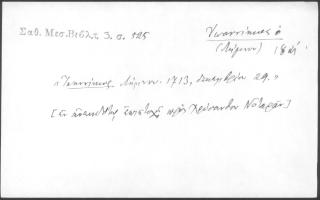 Σαθ. Μεσ. Βιβλ. 3. σ. 525
Ἰωαννίκιος ὁ
(Λήμνου) 18
«Ἰωαννίκιος Λήμνου. 1713, Δεκεμβρίου 29.»
[ἐν ἐπιστολῇ πρὸς Χρύσανθον Νοταρᾶν]